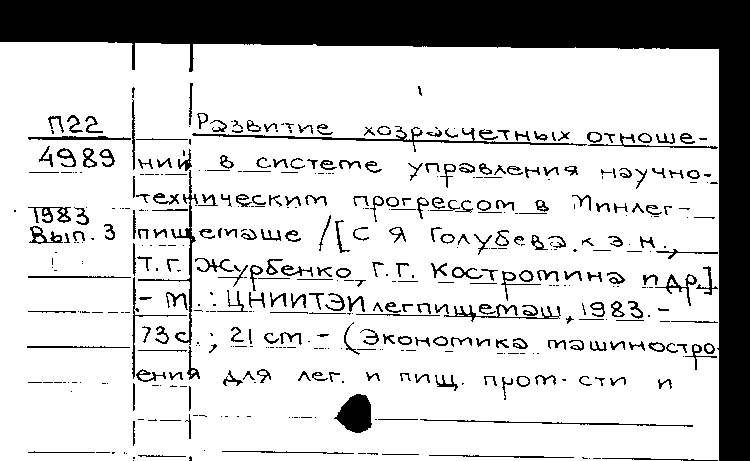 П22
4989
1983
Вып. 3
Развитие хозрасчетных отноше-
ний в системе управления научно-
техническим прогрессом в Минлег-
пищемаше /[С Я Голубева. к э.н.,
Т.Г. Журбенко, Г.Г. Костромина и др.]
- М.: ЦНИИТЭИлегпищемаш, 1983.-
73с.; 21 см. - (Экономика машиностро
ения для лег. и пищ. пром-сти и